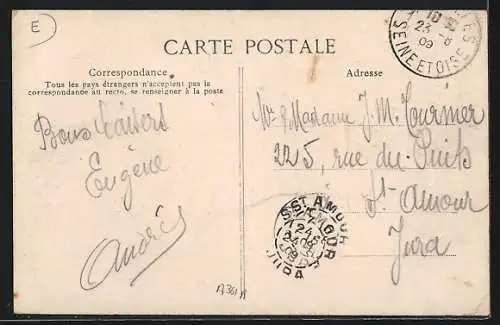 E
CARTE POSTALE
Correspondance
Tous les pays étrangers n'acceptent pas la
correspondance au recto, se renseigner à la poste
Adresse
Bons baisers
Eugène
André
Madame J. M. Tournier
225, rue du Puits
St. Amour
Jura
23 -8
09
SEINE ET OISE
ST AMOUR
24
09
JURA